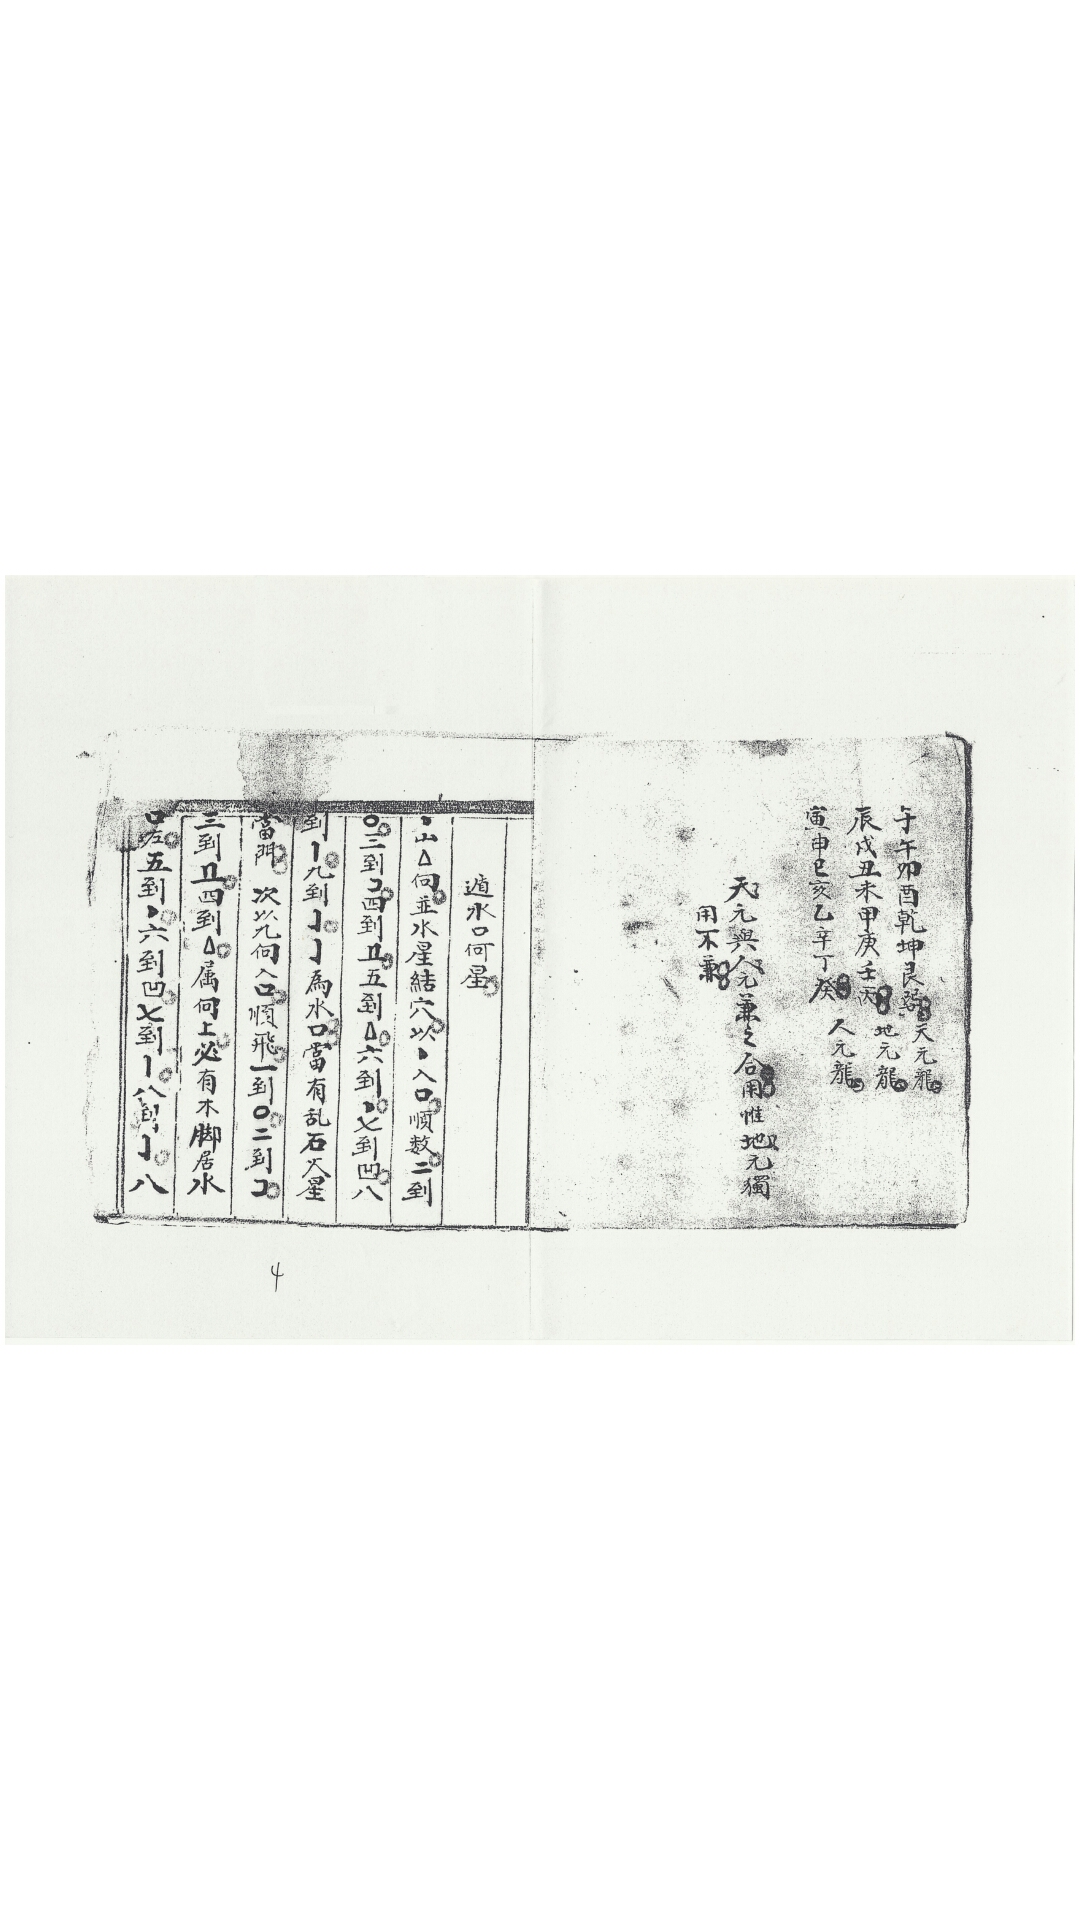 子午卯酉乾坤艮巽天元龍
辰戌丑未甲庚壬丙地元龍
寅申巳亥乙辛丁癸人元龍
天元與人元兼之合用惟地元獨
用不兼
遁水口何星
丶山△向並水星結穴以丶入口順數二到
〇三到コ四到彐五到△六到丶七到凹八
到丨九到亅亅為水口當有乱石火星
當門次以九向入口順飛一到〇二到コ
三到彐四到△属向上必有木脚居水
口左五到丶六到凹七到丨八到亅八
4